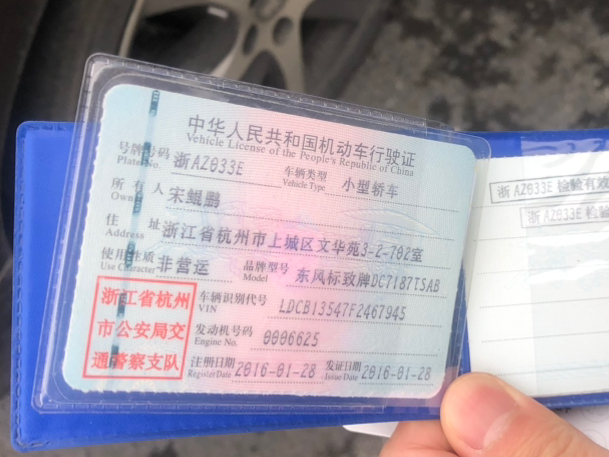 中华人民共和国机动车行驶证
Vehicle License of the People's Republic of China
号牌号码 浙AZ033E 车辆类型 小型轿车
Plate No. Vehicle Type
所有人 宋鲲鹏
Owner
住址 浙江省杭州市上城区文华苑3-2-702室
Address
使用性质 非营运 品牌型号 东风标致牌DC7187TSAB
Use Character Model
浙江省杭州
市公安局交
通警察支队
车辆识别代号 LDCB13547F2467945
VIN
发动机号码 0006625
Engine No.
注册日期 2016-01-28 发证日期 2016-01-28
Register Date Issue Date
浙AZ033E 检验有效
浙AZ033E 检